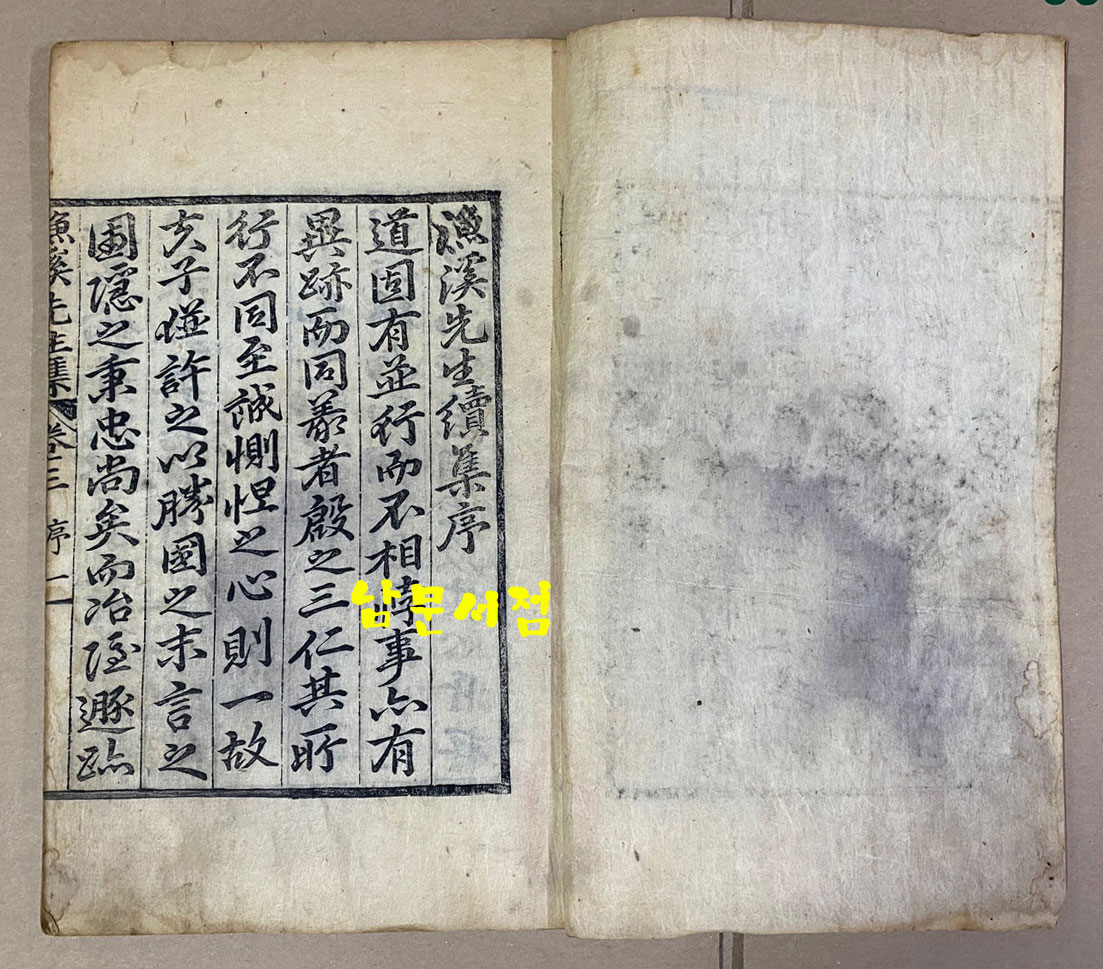 漁溪先生續集序
道固有並行而不相悖事亦有
異跡而同義者殷之三仁其所
行不同至誠惻怛之心則一故
夫子並許之以勝國之末言之
圃隱之秉忠尚矣而冶隱遯跡
漁溪先生集 卷三 序 一
남문서점